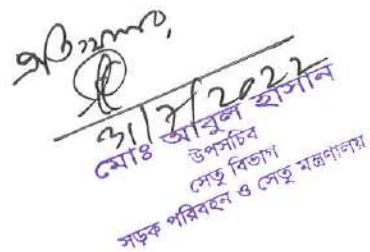 ৩১/৮/২০২২
মোঃ আবুল হাসান
উপসচিব
সেতু বিভাগ
সড়ক পরিবহন ও সেতু মন্ত্রণালয়